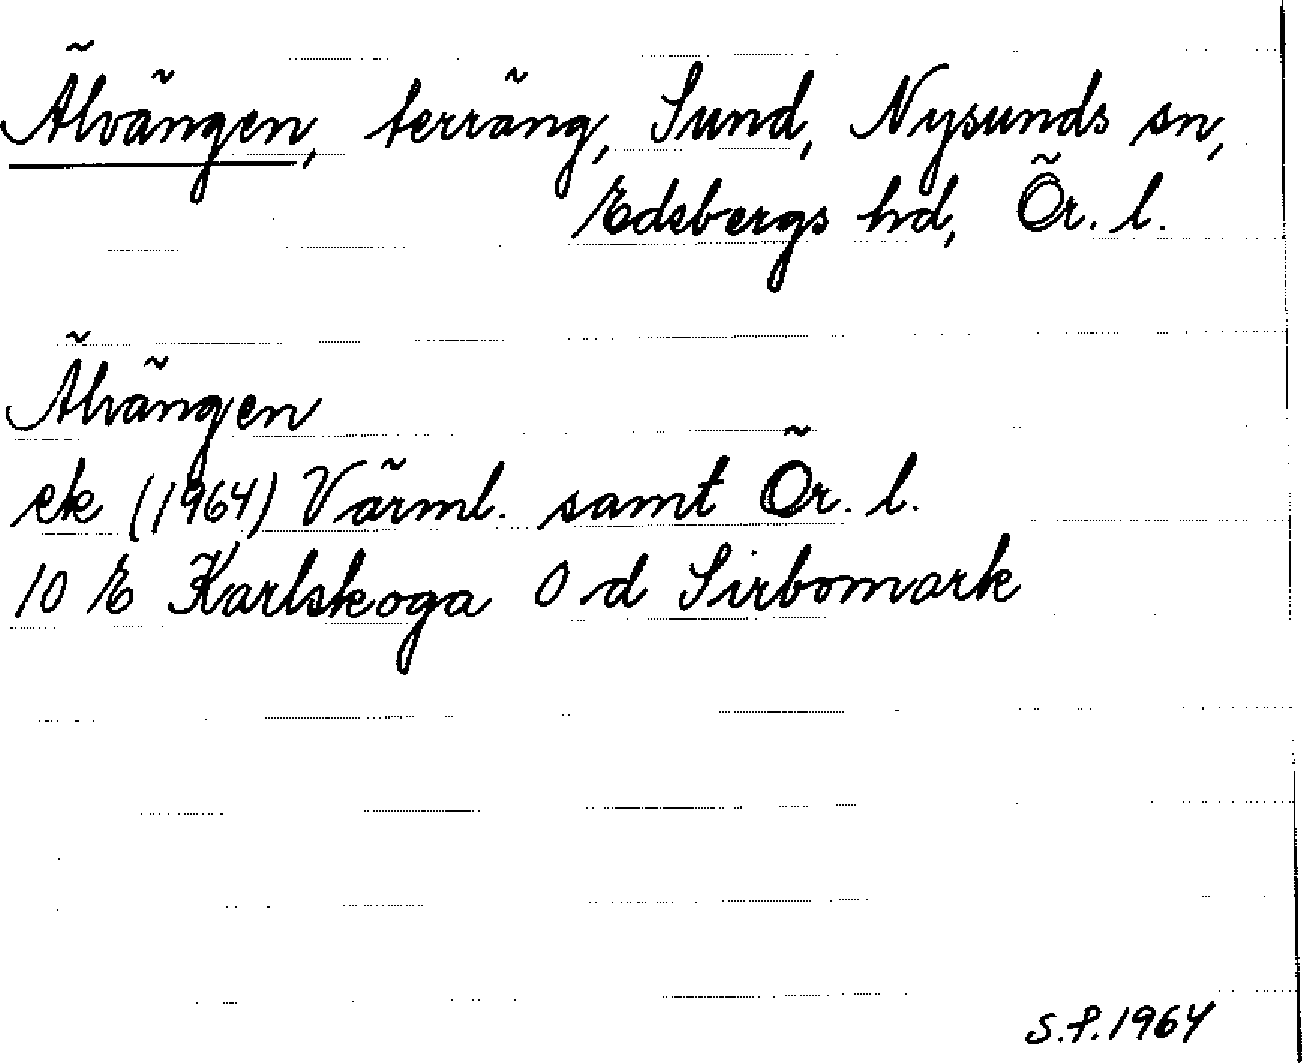 Älvängen, terräng, Sund, Nysunds sn,
Edsbergs hd, Ör. l.
Älvängen
ek (1964) Värml. samt Ör. l.
10 E Karlskoga 0 d Sirbomark
S.F.1964